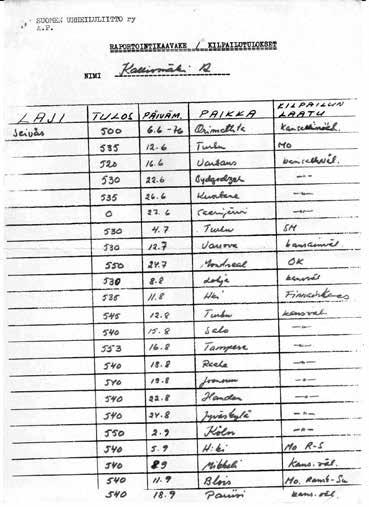 SUOMEN URHEILULIITTO ry
RAPORTOINTIKAAVAKE / KILPAILUTULOKSET
NIMI Kalliomäki A
LAJI TULOS PÄIVÄM. PAIKKA KILPAILUN LAATU
Seiväs 500 6.6-76 Orimattila
535 12.6 Turku MO
520 16.6 Varkaus
530 22.6 -"-
535 26.6 Kuortane -"-
0 27.6 Saarijärvi -"-
530 4.7 Turku SM
530 12.7 Varsova
550 24.7 Montreal OK
530 8.8 Lohja
535 11.8 Hki
545 12.8 Turku kansväl
540 15.8 Salo -"-
553 16.8 Tampere -"-
540 18.8 -"-
540 19.8 Joensuu -"-
540 22.8 -"-
540 24.8 Jyväskylä -"-
550 2.9 Köln -"-
540 5.9 H:ki Mo R-S
540 89 Mikkeli kans. väl.
540 11.9 Blois Mo. Ransk-Su
540 18.9 Pariisi kans. väl.